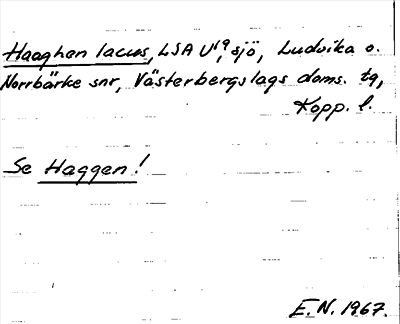 Haaghen lacus, LSA U19, sjö, Ludvika o.
Norrbärke snr, Västerbergslags doms. tg,
Kopp. l.
Se Haggen!
E.N. 1967.